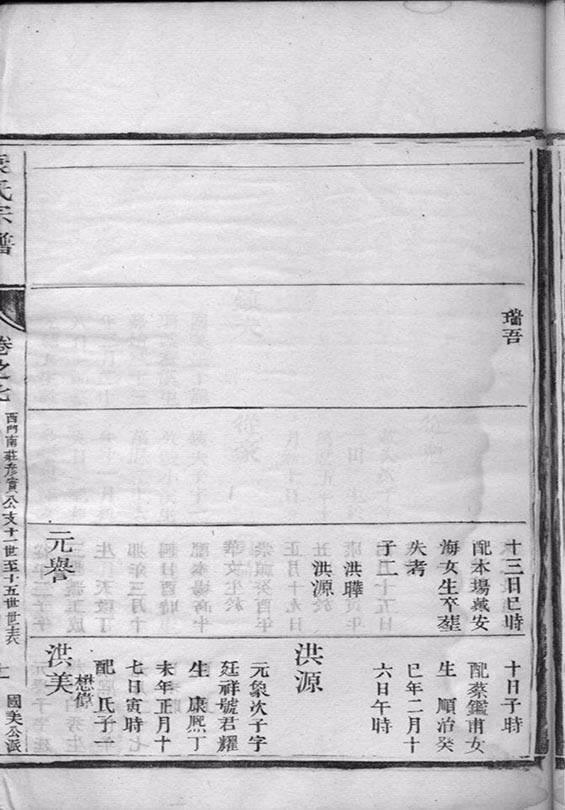 吾
十三日巳時
配本場戴安
海女生卒塟
失考
子二
洪曄
洪源
元譽
十日子時
配蔡鑑甫女
生 順治癸
巳年二月十
六日午時
洪源
元象次子字
廷祥號君耀
生 康熙丁
未年正月十
七日寅時
配氏子一
想偉
洪美
袁氏宗譜
卷之七
西門南莊彥實公支十一世至十五世世表
國美公派